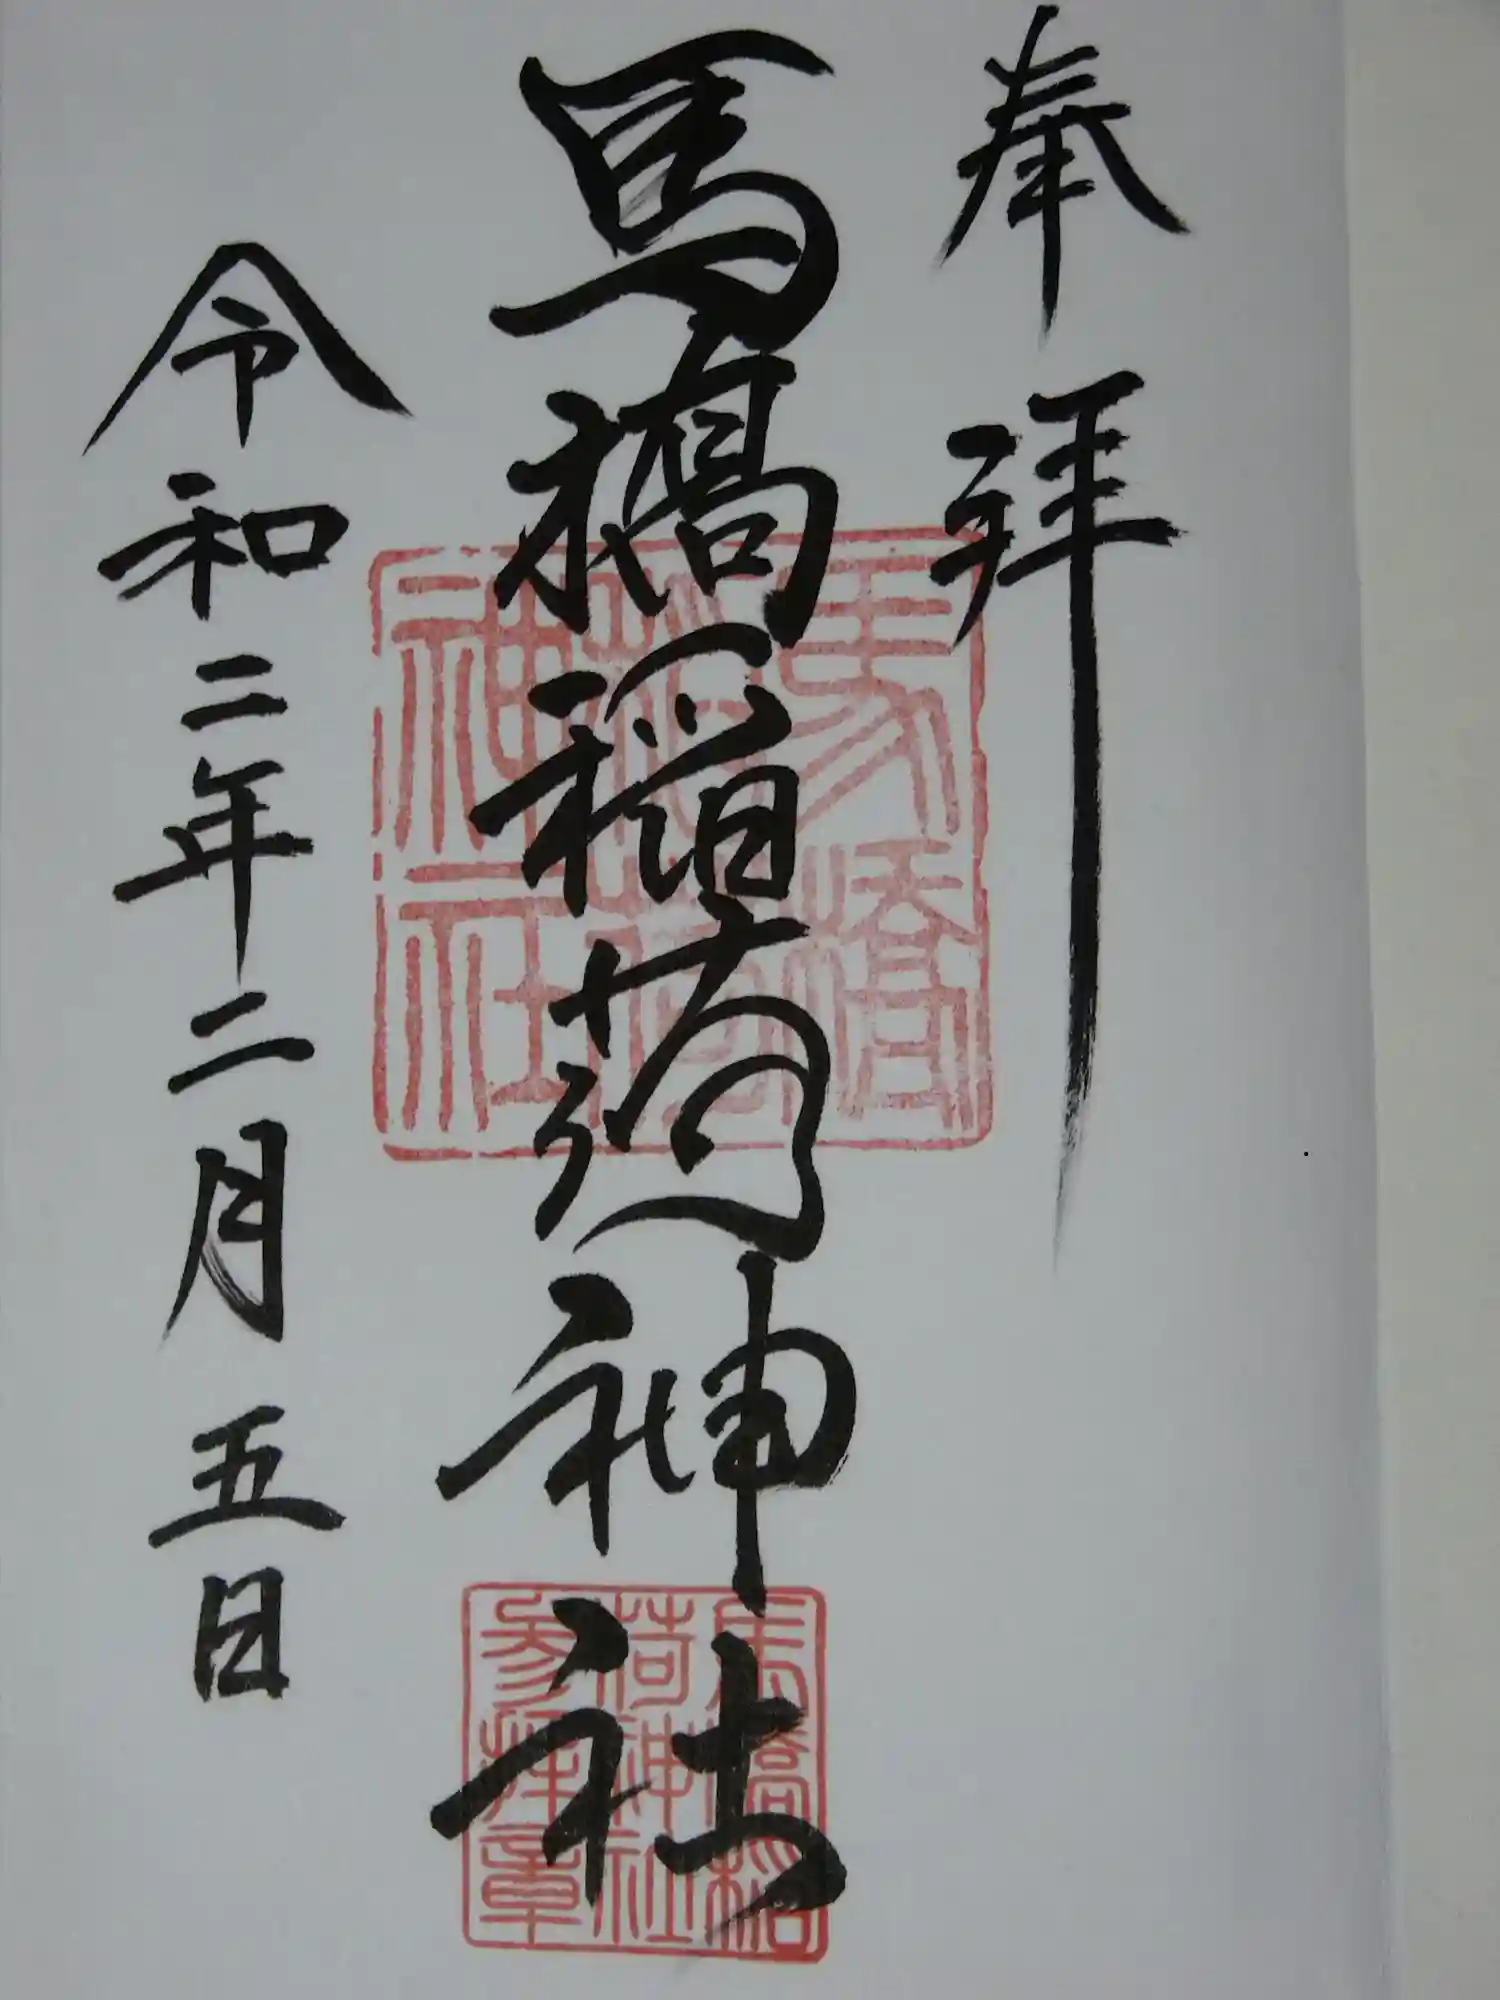 奉拝
馬橋稲荷神社
令和二年二月五日
馬橋
稲荷
神社
馬橋稲
荷神社
参拝章